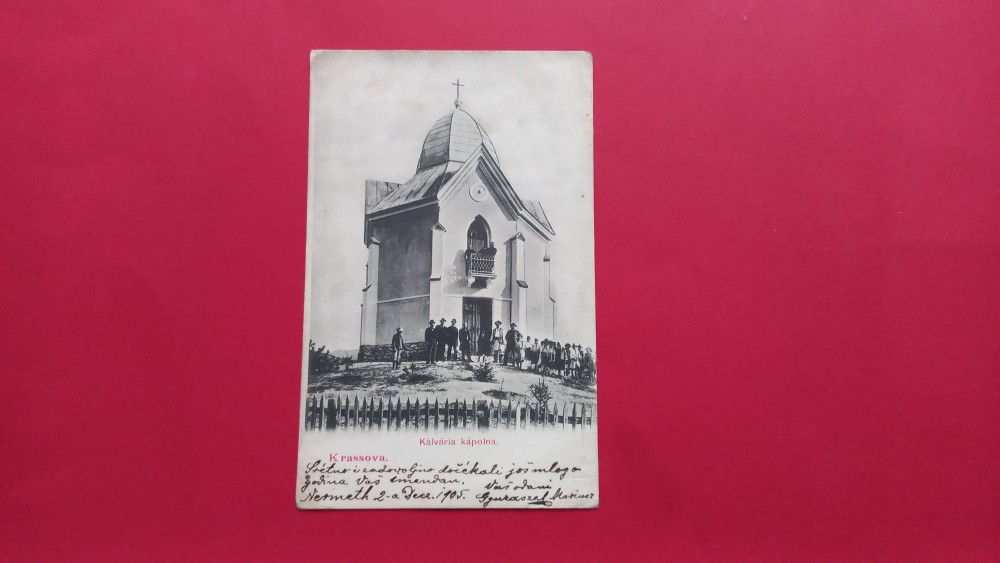 Kálvária kápolna.
Krassova.
Srétno i zadovoljno dočékali još mlogo
godina Vaš imendan. Vaš odani
Nermeth 2-a Decz. 1905. Gyuraszel